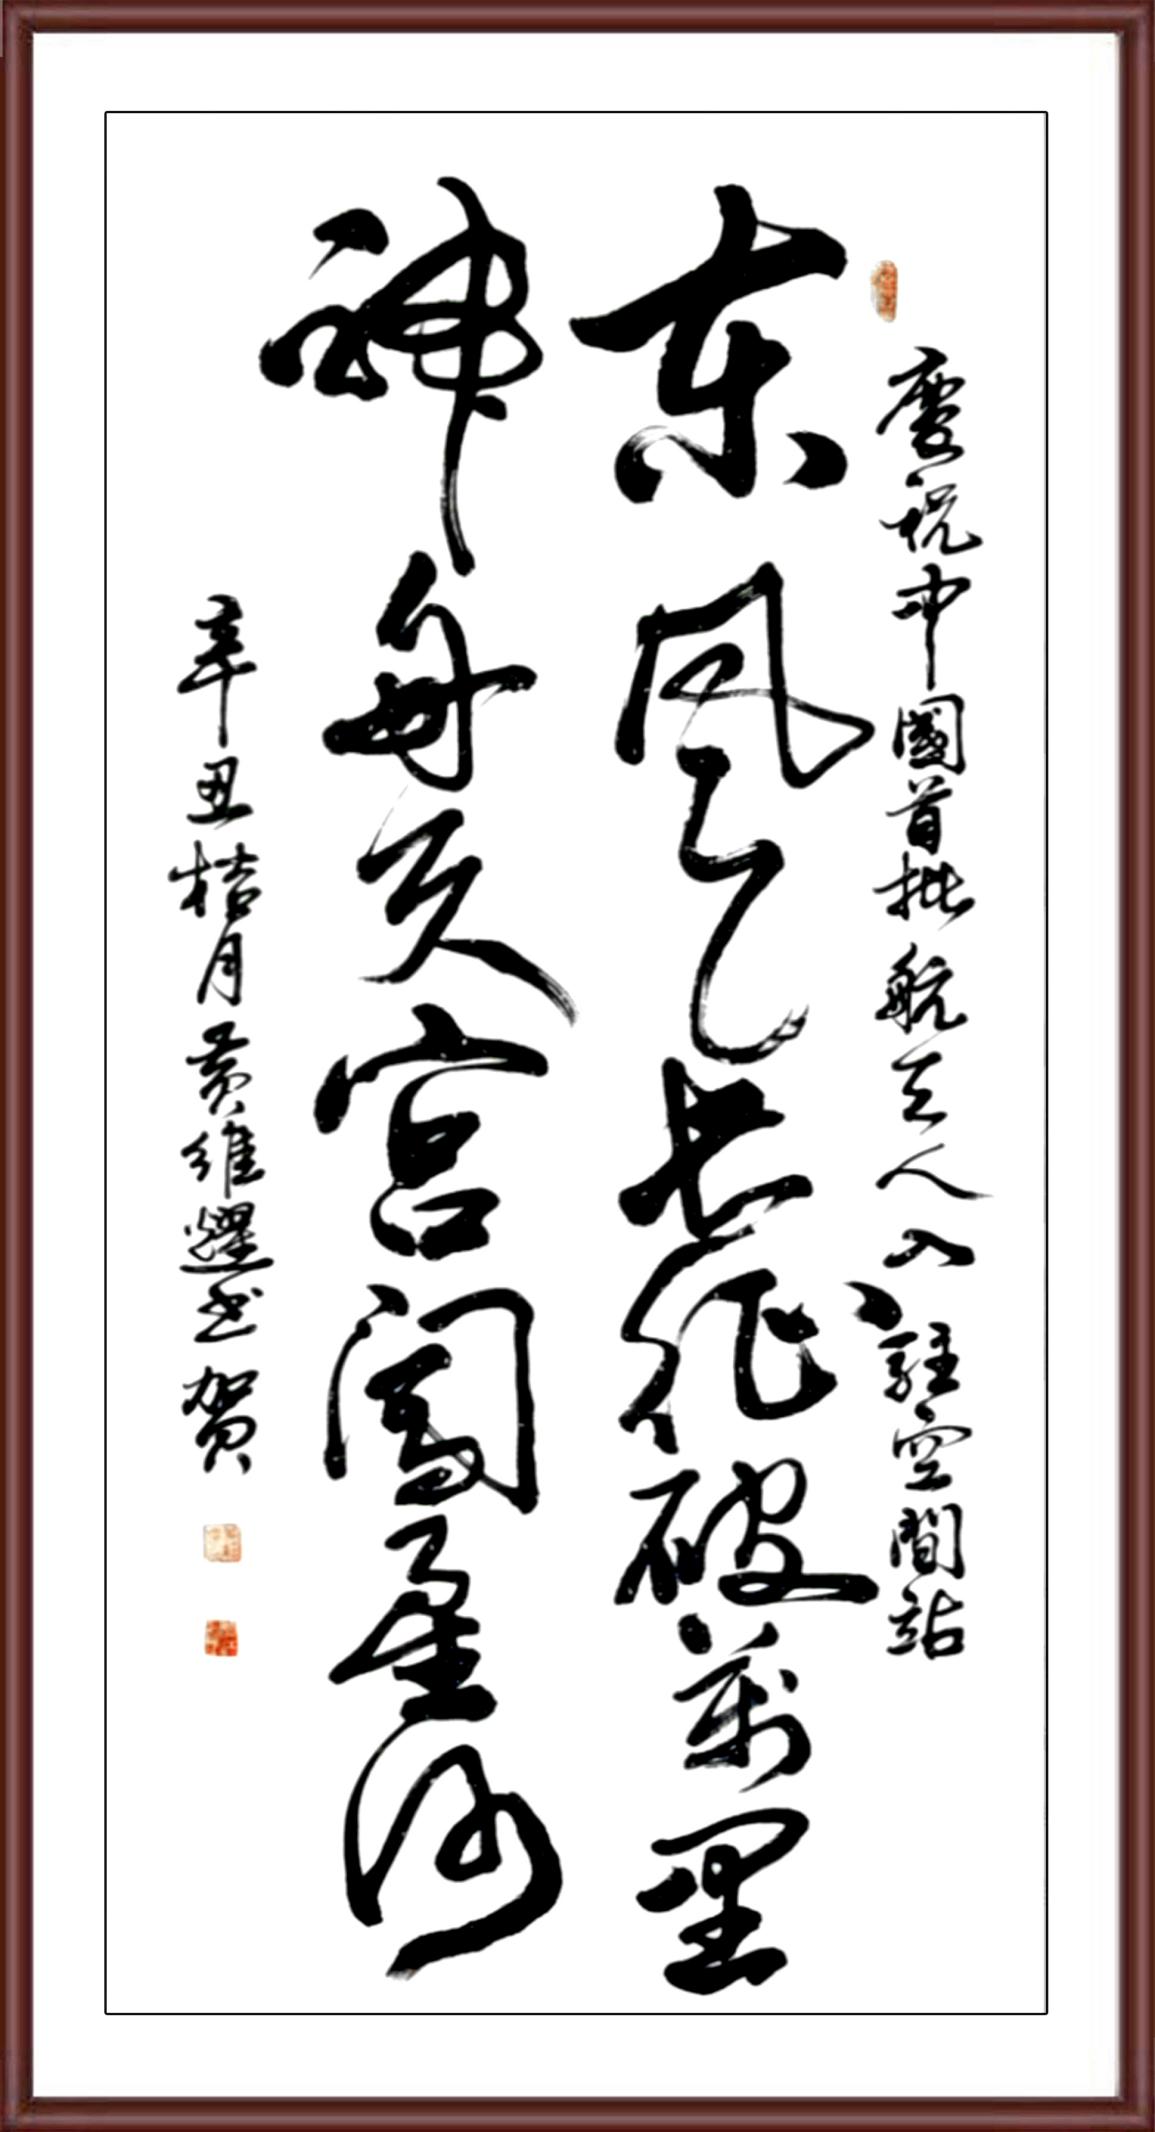 慶祝中國首批航天人入駐空間站
东风长征破萬里
神舟天宫闯星河
辛丑桔月黄維耀书贺